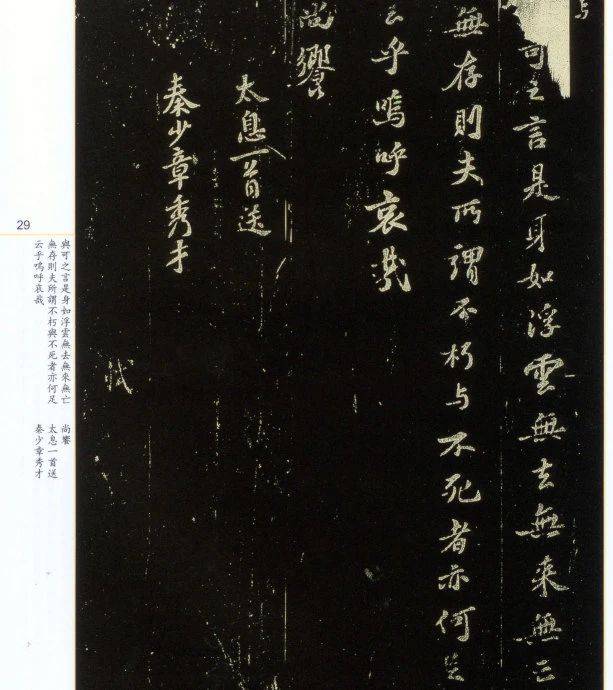 与
可之言是身如浮雲無去無来無亡
無存則夫所謂不朽与不死者亦何足
云乎嗚呼哀哉
尚饗
太息一首送
秦少章秀才
29
與可之言是身如浮雲無去無來無亡
無存則夫所謂不朽與不死者亦何足
云乎嗚呼哀哉
尚饗
太息一首送
秦少章秀才